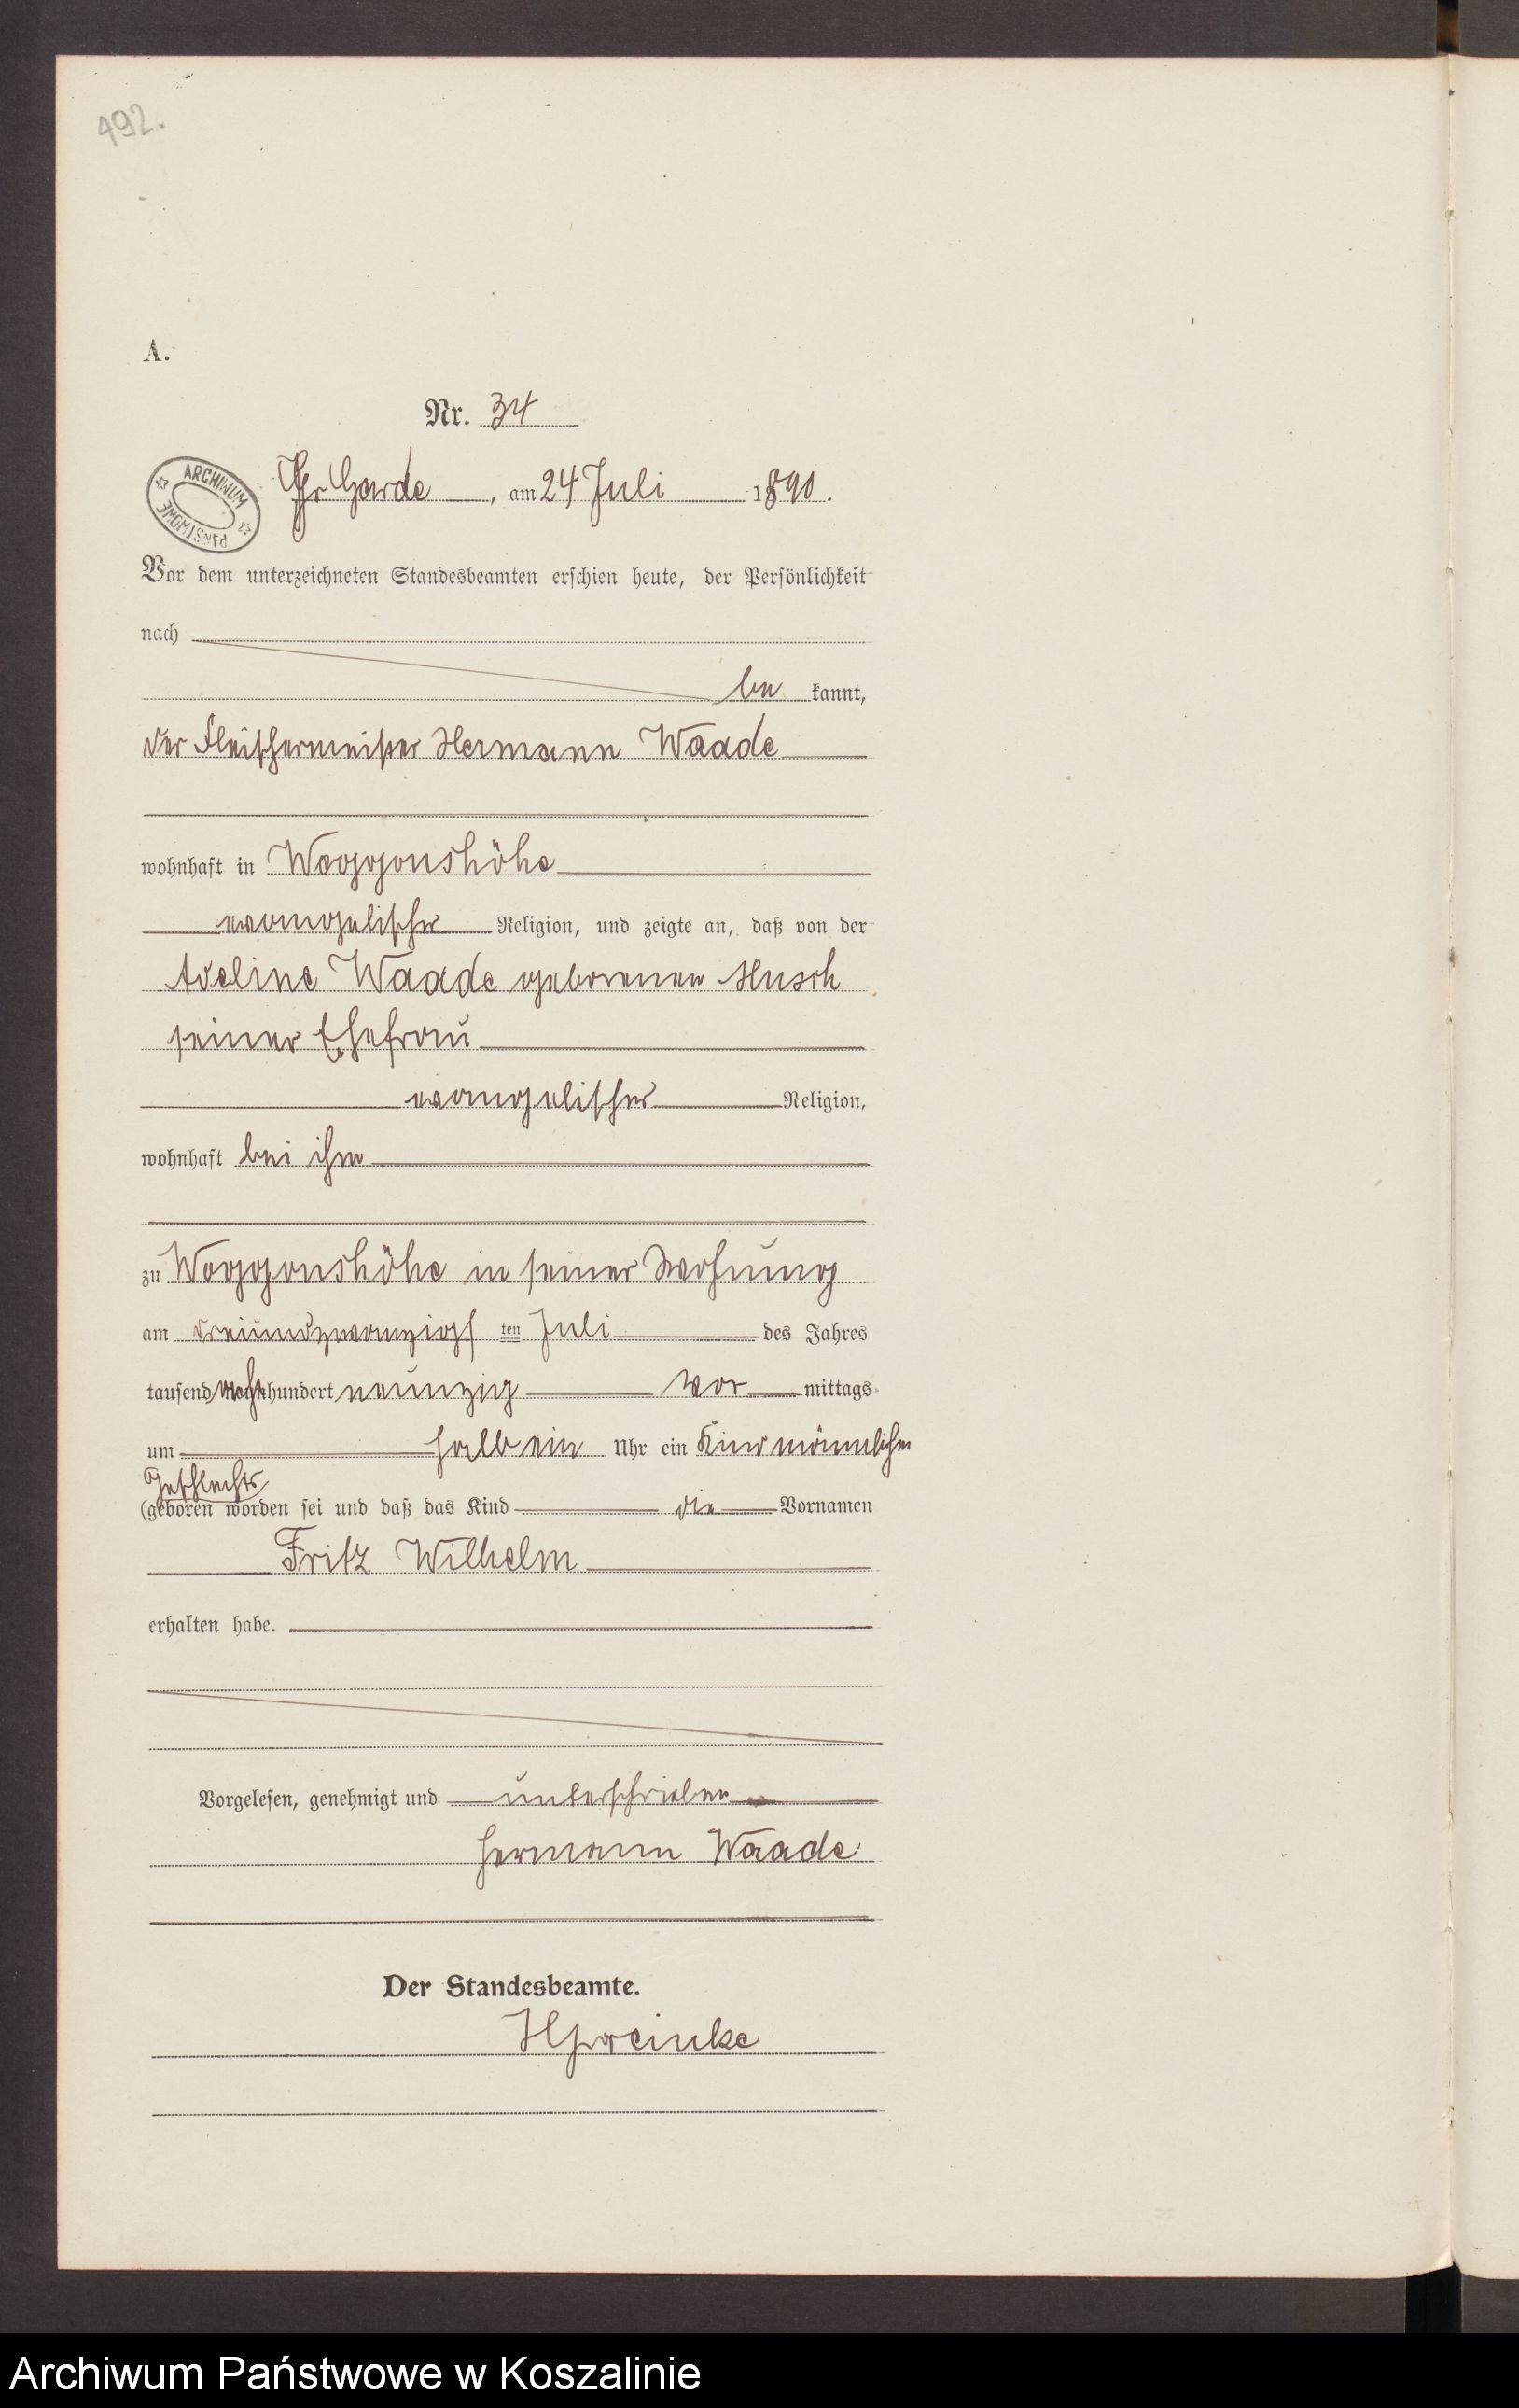 492.
A.
Nr. 34
ARCHIWUM PAŃSTWOWE
Gr Garde, am 24 Juli 1890.
Vor dem unterzeichneten Standesbeamten erschien heute, der Persönlichkeit
nach
be kannt,
der Fleischermeister Hermann Waade
wohnhaft in Woggonshöhe
evangelischer Religion, und zeigte an, daß von der
Adeline Waade geborenen Husch
seiner Ehefrau
evangelischer Religion,
wohnhaft bei ihm
zu Woggonshöhe in seiner Wohnung
am dreiundzwanzigs ten Juli des Jahres
tausend acht hundert neunzig Vor mittags
um halb ein Uhr ein Kind männlichen
Geschlechts
geboren worden sei und daß das Kind die Vornamen
Fritz Wilhelm
erhalten habe.
Vorgelesen, genehmigt und unterschrieben
Hermann Waade
Der Standesbeamte.
Archiwum Państwowe w Koszalinie